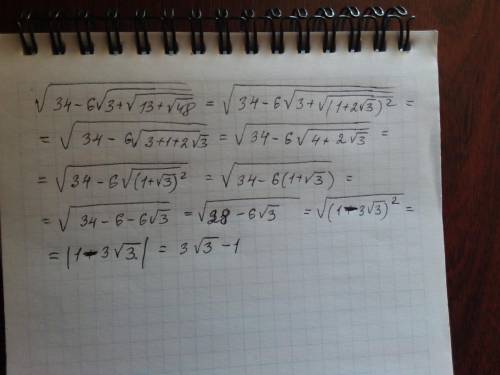 √(34-6√(3+√(13+√48))) = √(34-6√(3+√((1+2√3)²))) =
= √(34-6√(3+1+2√3)) = √(34-6√(4+2√3)) =
= √(34-6√((1+√3)²)) = √(34-6(1+√3)) =
= √(34-6-6√3) = √(28-6√3) = √((1-3√3)²) =
= |1-3√3| = 3√3-1